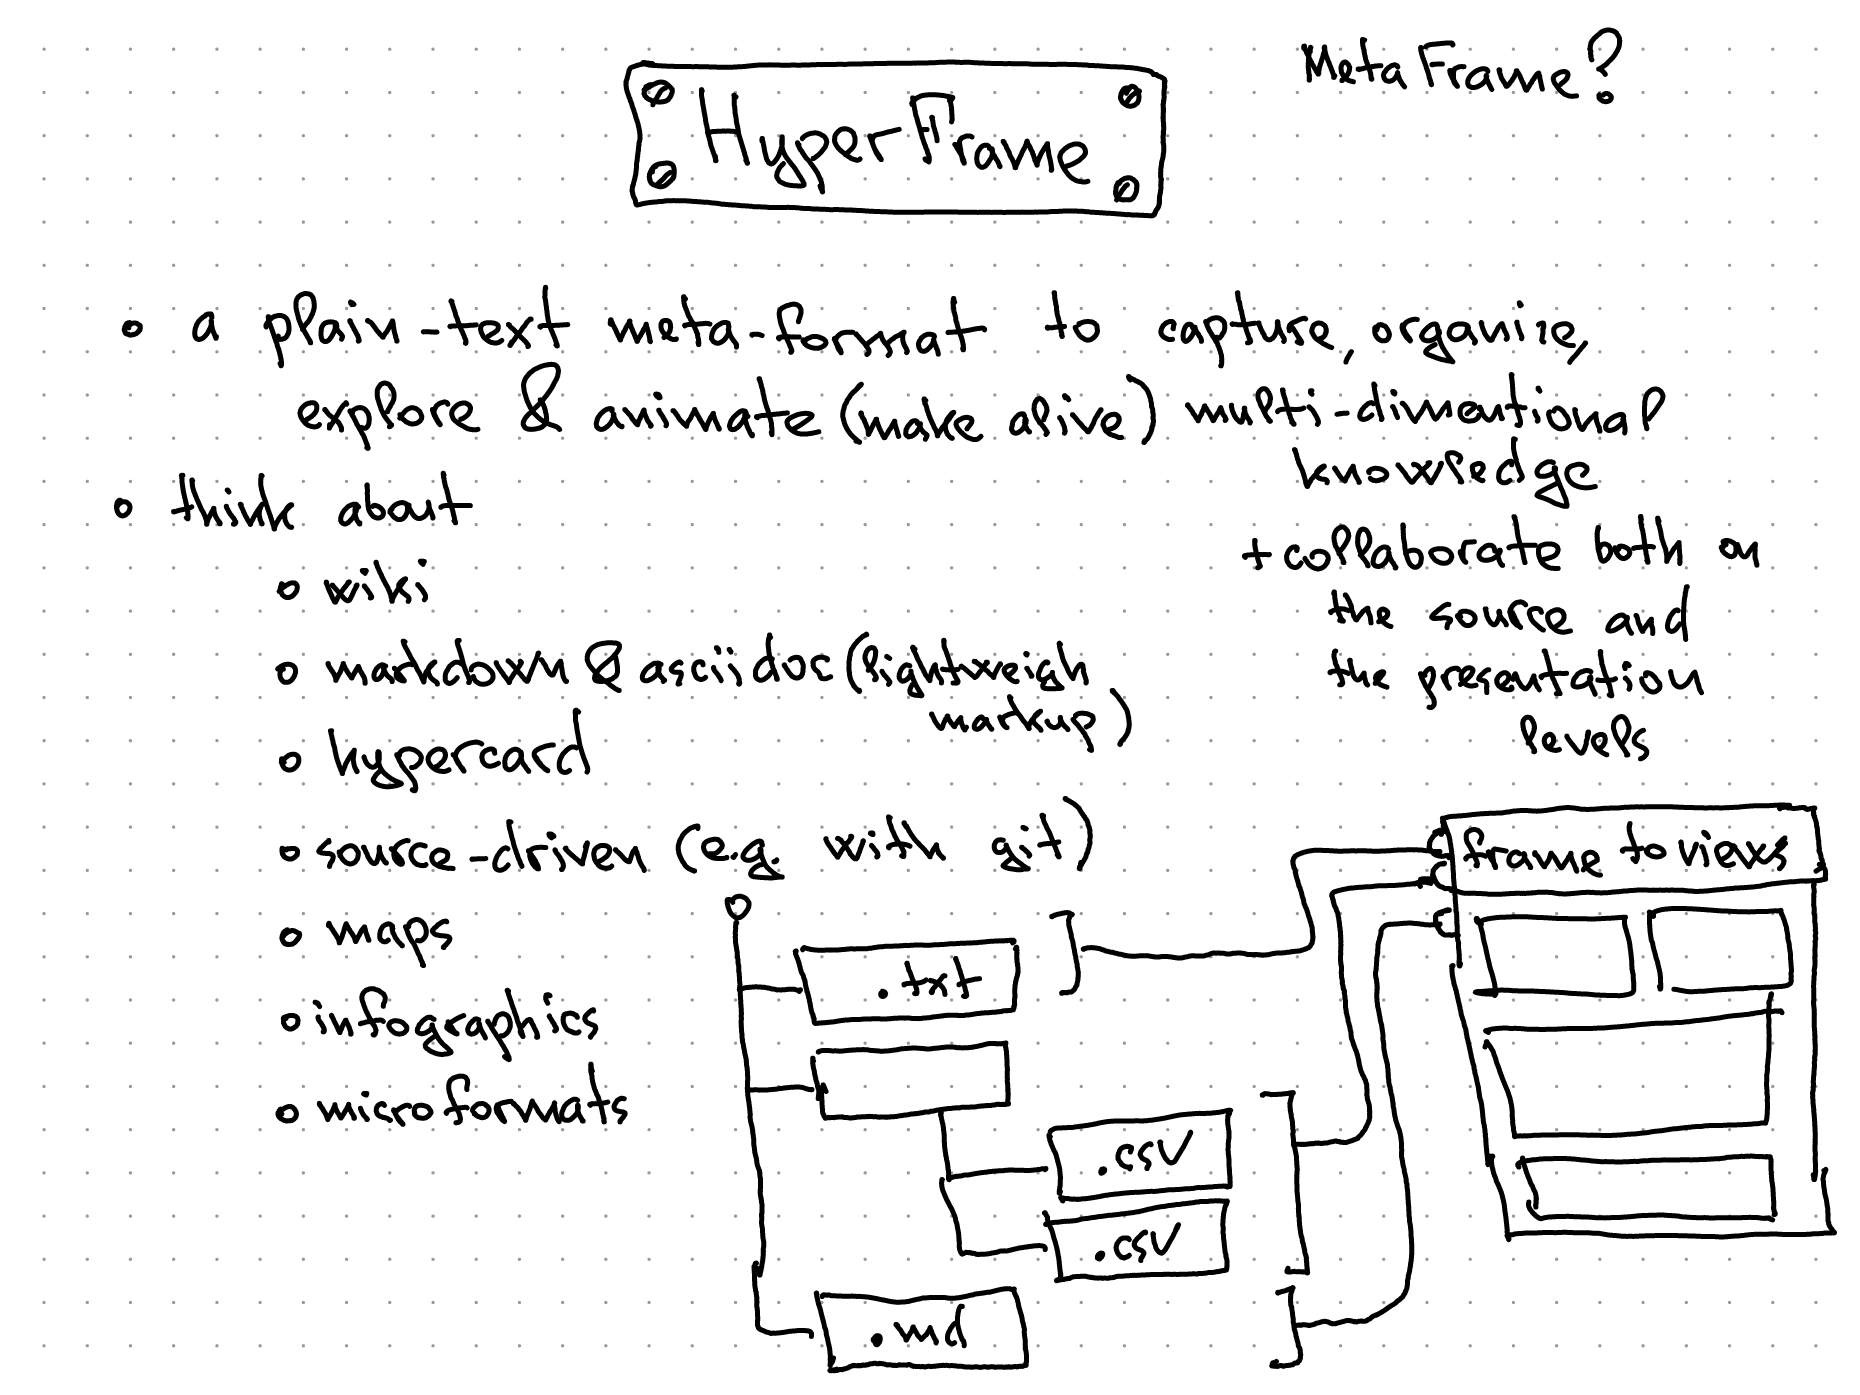 Meta Frame?
HyperFrame
a plain-text meta-format to capture, organize,
explore & animate (make alive) multi-dimentional
knowledge
think about
+ collaborate both on
the source and
the presentation
levels
wiki
markdown & asciidoc (lightweigh
markup)
hypercard
source-driven (e.g. with git)
maps
infographics
microformats
frame to views
.txt
.csv
.csv
.md